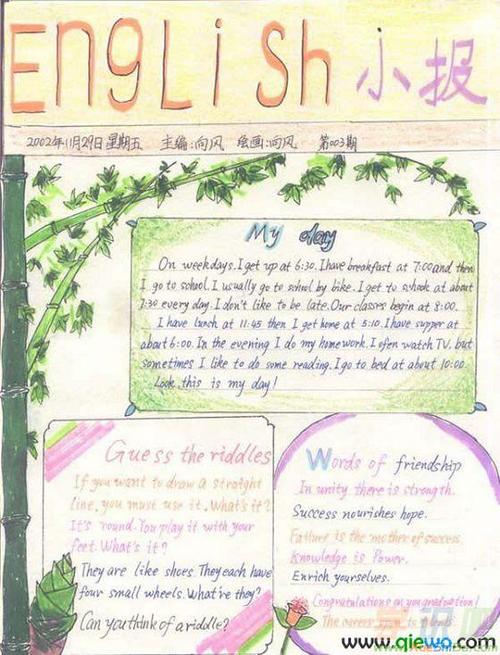 English 小报
2002年11月29日 星期五 主编:向风 绘画:向风 第003期
My day
On weekdays. I get up at 6:30. I have breakfast at 7:00 and then
I go to school. I usually go to school by bike. I get to school at about
7:30 every day. I don't like to be late. Our classes begin at 8:00.
I have lunch at 11:45 then I get home at 5:10. I have supper at
about 6:00. In the evening I do my homework. I ofen watch TV. but
sometimes I like to do some reading. I go to bed at about 10:00.
Look, this is my day!
Guess the riddles
If you want to draw a straight
line, you must use it. What's it?
It's round. You play it with your
feet. What's it?
They are like shoes. They each have
four small wheels. What're they?
Can you think of a riddle?
Words of friendship
In unity there is strength.
Success nourishes hope.
Failure is the mother of success.
Knowledge is Power.
Enrich yourselves.
Congratulations on you graduation!
The career
www.qiewo.com